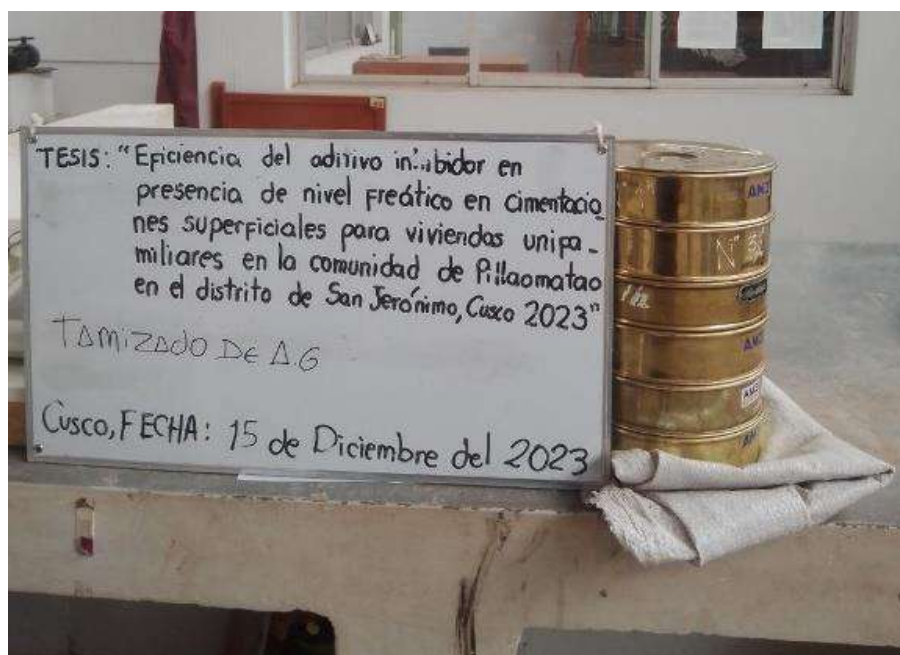 TESIS: "Eficiencia del aditivo inhibidor en
presencia de nivel freático en cimentacio_
nes superficiales para viviendas unifa_
miliares en la comunidad de Pillaomatao
en el distrito de San Jerónimo, Cusco 2023"
TAMIZADO DE A.G
Cusco, FECHA: 15 de Diciembre del 2023
N°